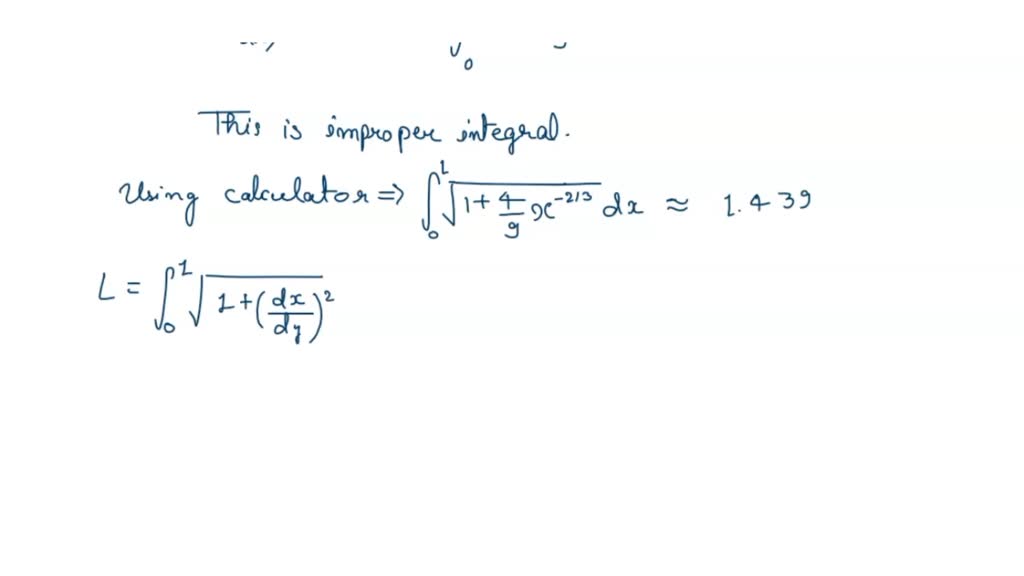 0
This is improper integral.
Using calculator ⇒ ∫₀¹ √(1 + 4/9 x^(-2/3)) dx ≈ 1.439
L = ∫₀¹ √(1 + (dx/dy)²)